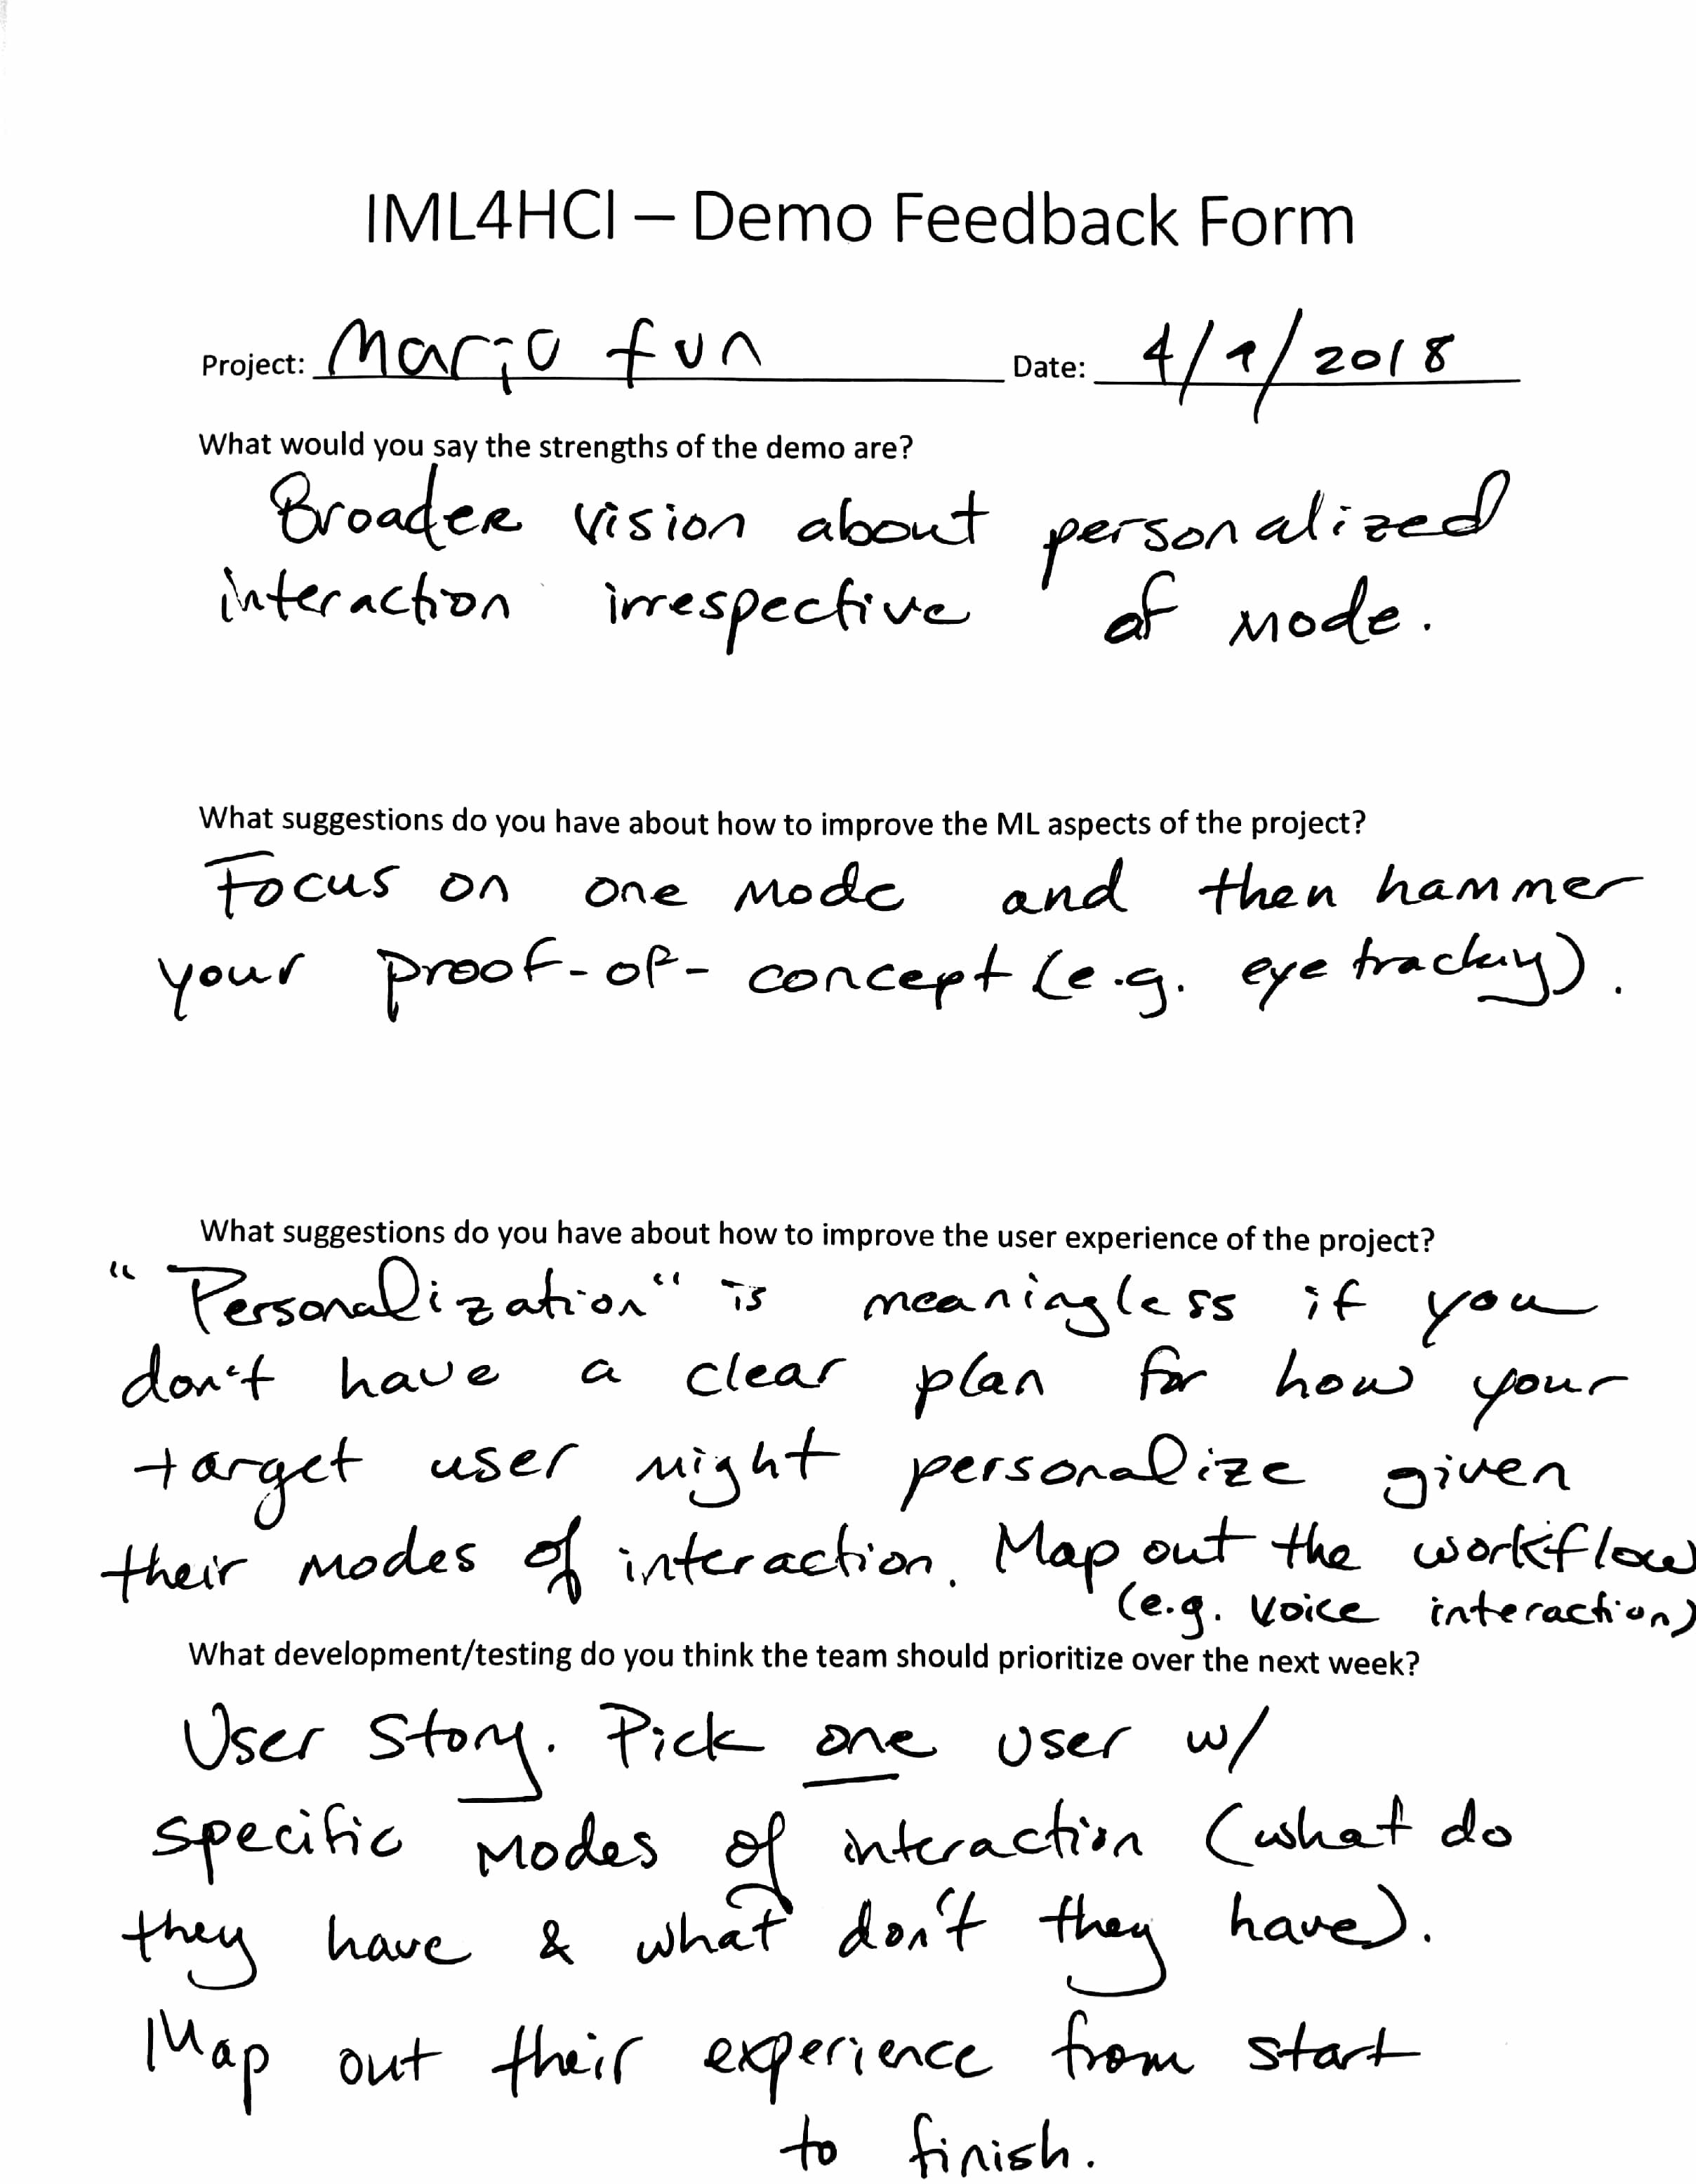 IML4HCI – Demo Feedback Form
Project: Mario fun Date: 4/1/2018
What would you say the strengths of the demo are?
Broader vision about personalized
interaction irrespective of mode.
What suggestions do you have about how to improve the ML aspects of the project?
Focus on one mode and then hammer
your proof-of-concept (e.g. eye tracking).
What suggestions do you have about how to improve the user experience of the project?
"Personalization" is meaningless if you
don't have a clear plan for how your
target user might personalize given
their modes of interaction. Map out the workflow
(e.g. voice interaction)
What development/testing do you think the team should prioritize over the next week?
User story. Pick one user w/
specific modes of interaction (what do
they have & what don't they have).
Map out their experience from start
to finish.